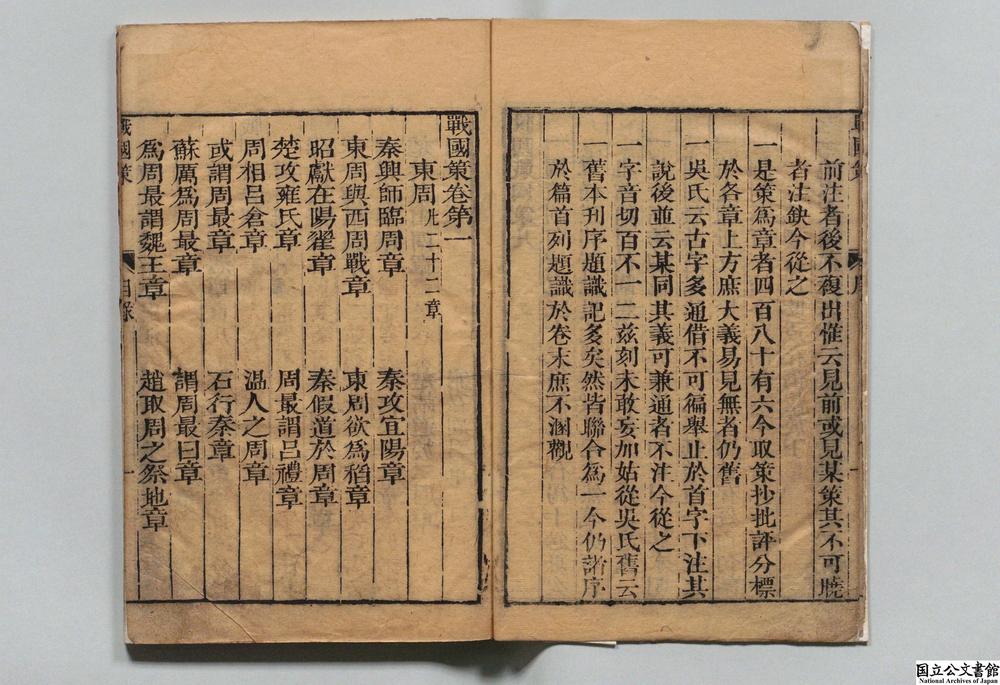 前注者後不複出惟云見前或見某策其不可曉
者注缺今從之
一是策為章者四百八十有六今取策抄批評分標
於各章上方庶大義易見無者仍舊
一吳氏云古字多通借不可徧舉止於首字下注其
說後並云某同其義可兼通者不注今從之
一字音切百不一二兹刻未敢妄加姑從吳氏舊云
一舊本刊序題識記多矣然皆聯合為一今仍諸序
於篇首列題識於卷末庶不溷觀
戰國策卷第一
東周凡二十二章
秦興師臨周章
秦攻宜陽章
東周與西周戰章
東周欲為稻章
昭獻在陽翟章
秦假道於周章
楚攻雍氏章
周最謂呂禮章
周相呂倉章
温人之周章
或謂周最章
石行秦章
蘇厲為周最章
謂周最曰章
為周最謂魏王章
趙取周之祭地章
戰國策
目錄
一
国立公文書館
National Archives of Japan